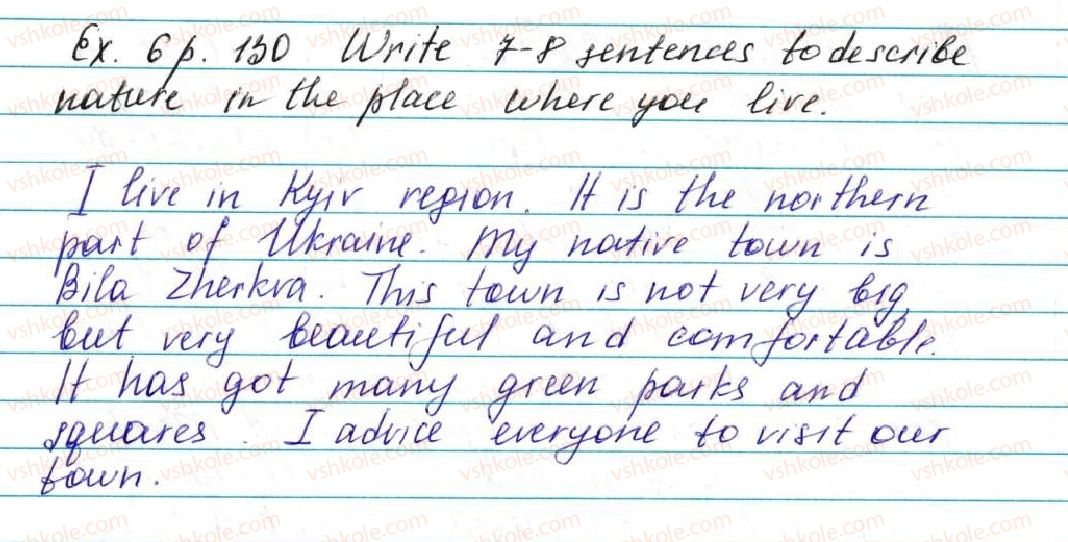 Ex. 6 p. 130 Write 7-8 sentences to describe
nature in the place where you live.
I live in Kyiv region. It is the northern
part of Ukraine. My native town is
Bila Zherkva. This town is not very big,
but very beautiful and comfortable.
It has got many green parks and
squares. I advice everyone to visit our
town.